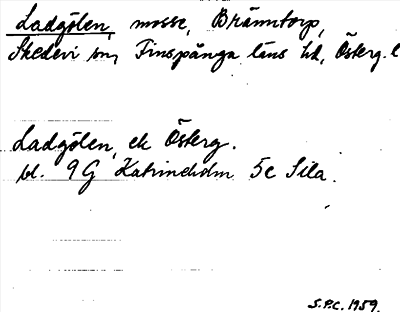 Ladgölen, mosse, Bränntorp,
Skedevi sn, Finspånga läns hd, Österg. l
Ladgölen, ek Österg.
bl. 9G Katrineholm 5c Sila.
S.P.C. 1959.